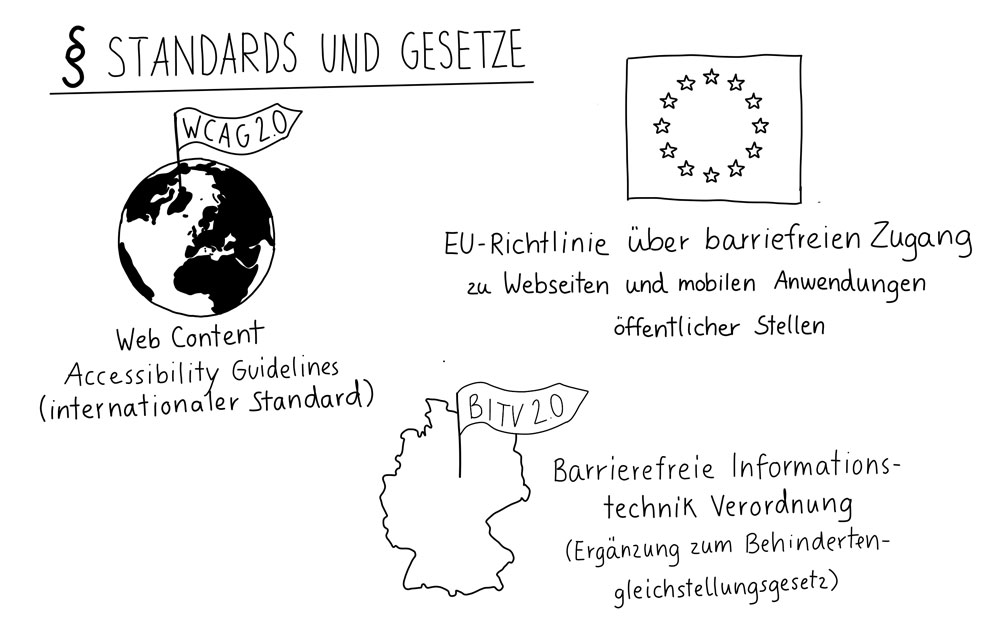 § STANDARDS UND GESETZE
WCAG 2.0
Web Content
Accessibility Guidelines
(internationaler Standard)
EU-Richtlinie über barriefreien Zugang
zu Webseiten und mobilen Anwendungen
öffentlicher Stellen
BITV 2.0
Barrierefreie Informations-
technik Verordnung
(Ergänzung zum Behinderten-
gleichstellungsgesetz)